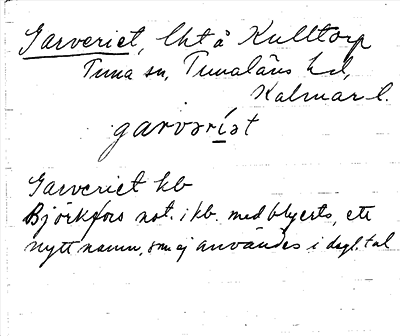 Garveriet, lht å Kulltorp
Tuna sn, Tunaläns hd,
Kalmar l.
garvəríət
Garveriet kb
Björkfors not. i kb. med blyerts, ett
nytt namn, som ej användes i dagl. tal